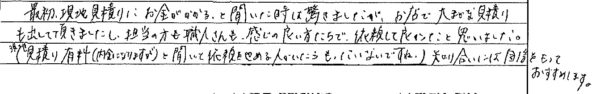 最初、現地見積りにお金がかかる、と聞いた時は驚きましたが、お店で大まかな見積り
も出して頂きましたし、担当の方も職人さんも、感じの良い方たちで、依頼して良かたこと思いました。
現地(見積り有料(内金になりますが)と聞いて依頼を止める人がいたらもったいないですね!)知り合いには自信をもって
おすすめします。